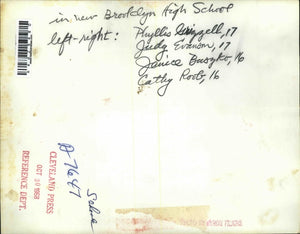 in new Brooklyn High School
left-right: Phyllis Mizzell, 17
Judy Evanson, 17
Janice Baszko, 16
Cathy Roob, 16
CLEVELAND PRESS
OCT 10 1968
REFERENCE DEPT.
A-7647